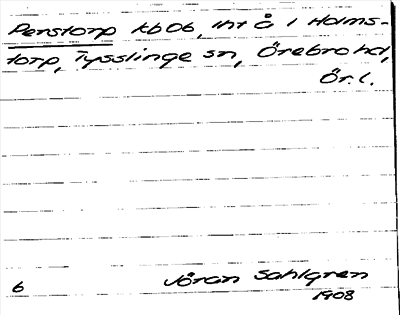 Perstorp kbo6, iht å 1 Holms-
torp, Tysslinge sn, Örebro hd,
Ör. l.
6 Jöran Sahlgren
1908